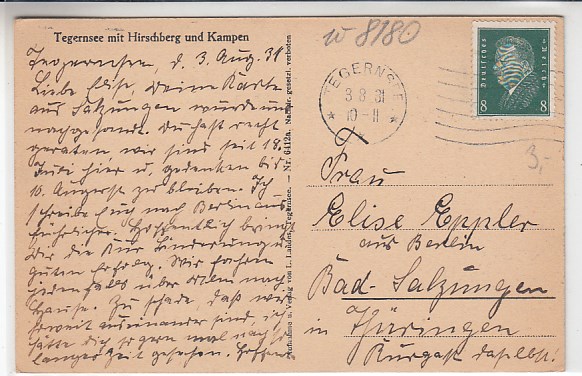 Tegernsee mit Hirschberg und Kampen
w 8180
Tegernsee, d. 3. Aug. 31
Liebe Elise, Deine Karte
aus Salzungen wurde uns
nachgesandt. Du hast recht
geraten wir sind seit 18.
Juli hier u. gedenken bis
10. August zu bleiben. Ich
schreibe Euch nach Berlin aus-
führlicher. Hoffentlich bringt
Dir die Kur Linderung u.
guten Erfolg. Wir fahren
jedenfalls über nach
Hause. Zu schade, daß wir
soweit auseinander sind, ich
hätte Dich so gern mal nach so
langer Zeit gesehen.
Aufnahme u. Verlag von L. Tegernsee. — Nr. 6412a. Nachdr. gesetzl. verboten
TEGERNSEE
3 8 31
10-11
Deutsches Reich
8 8
3,-
Frau
Elise Eppler
aus Berlin
Bad-Salzungen
in Thüringen
Kurgast daselbst.